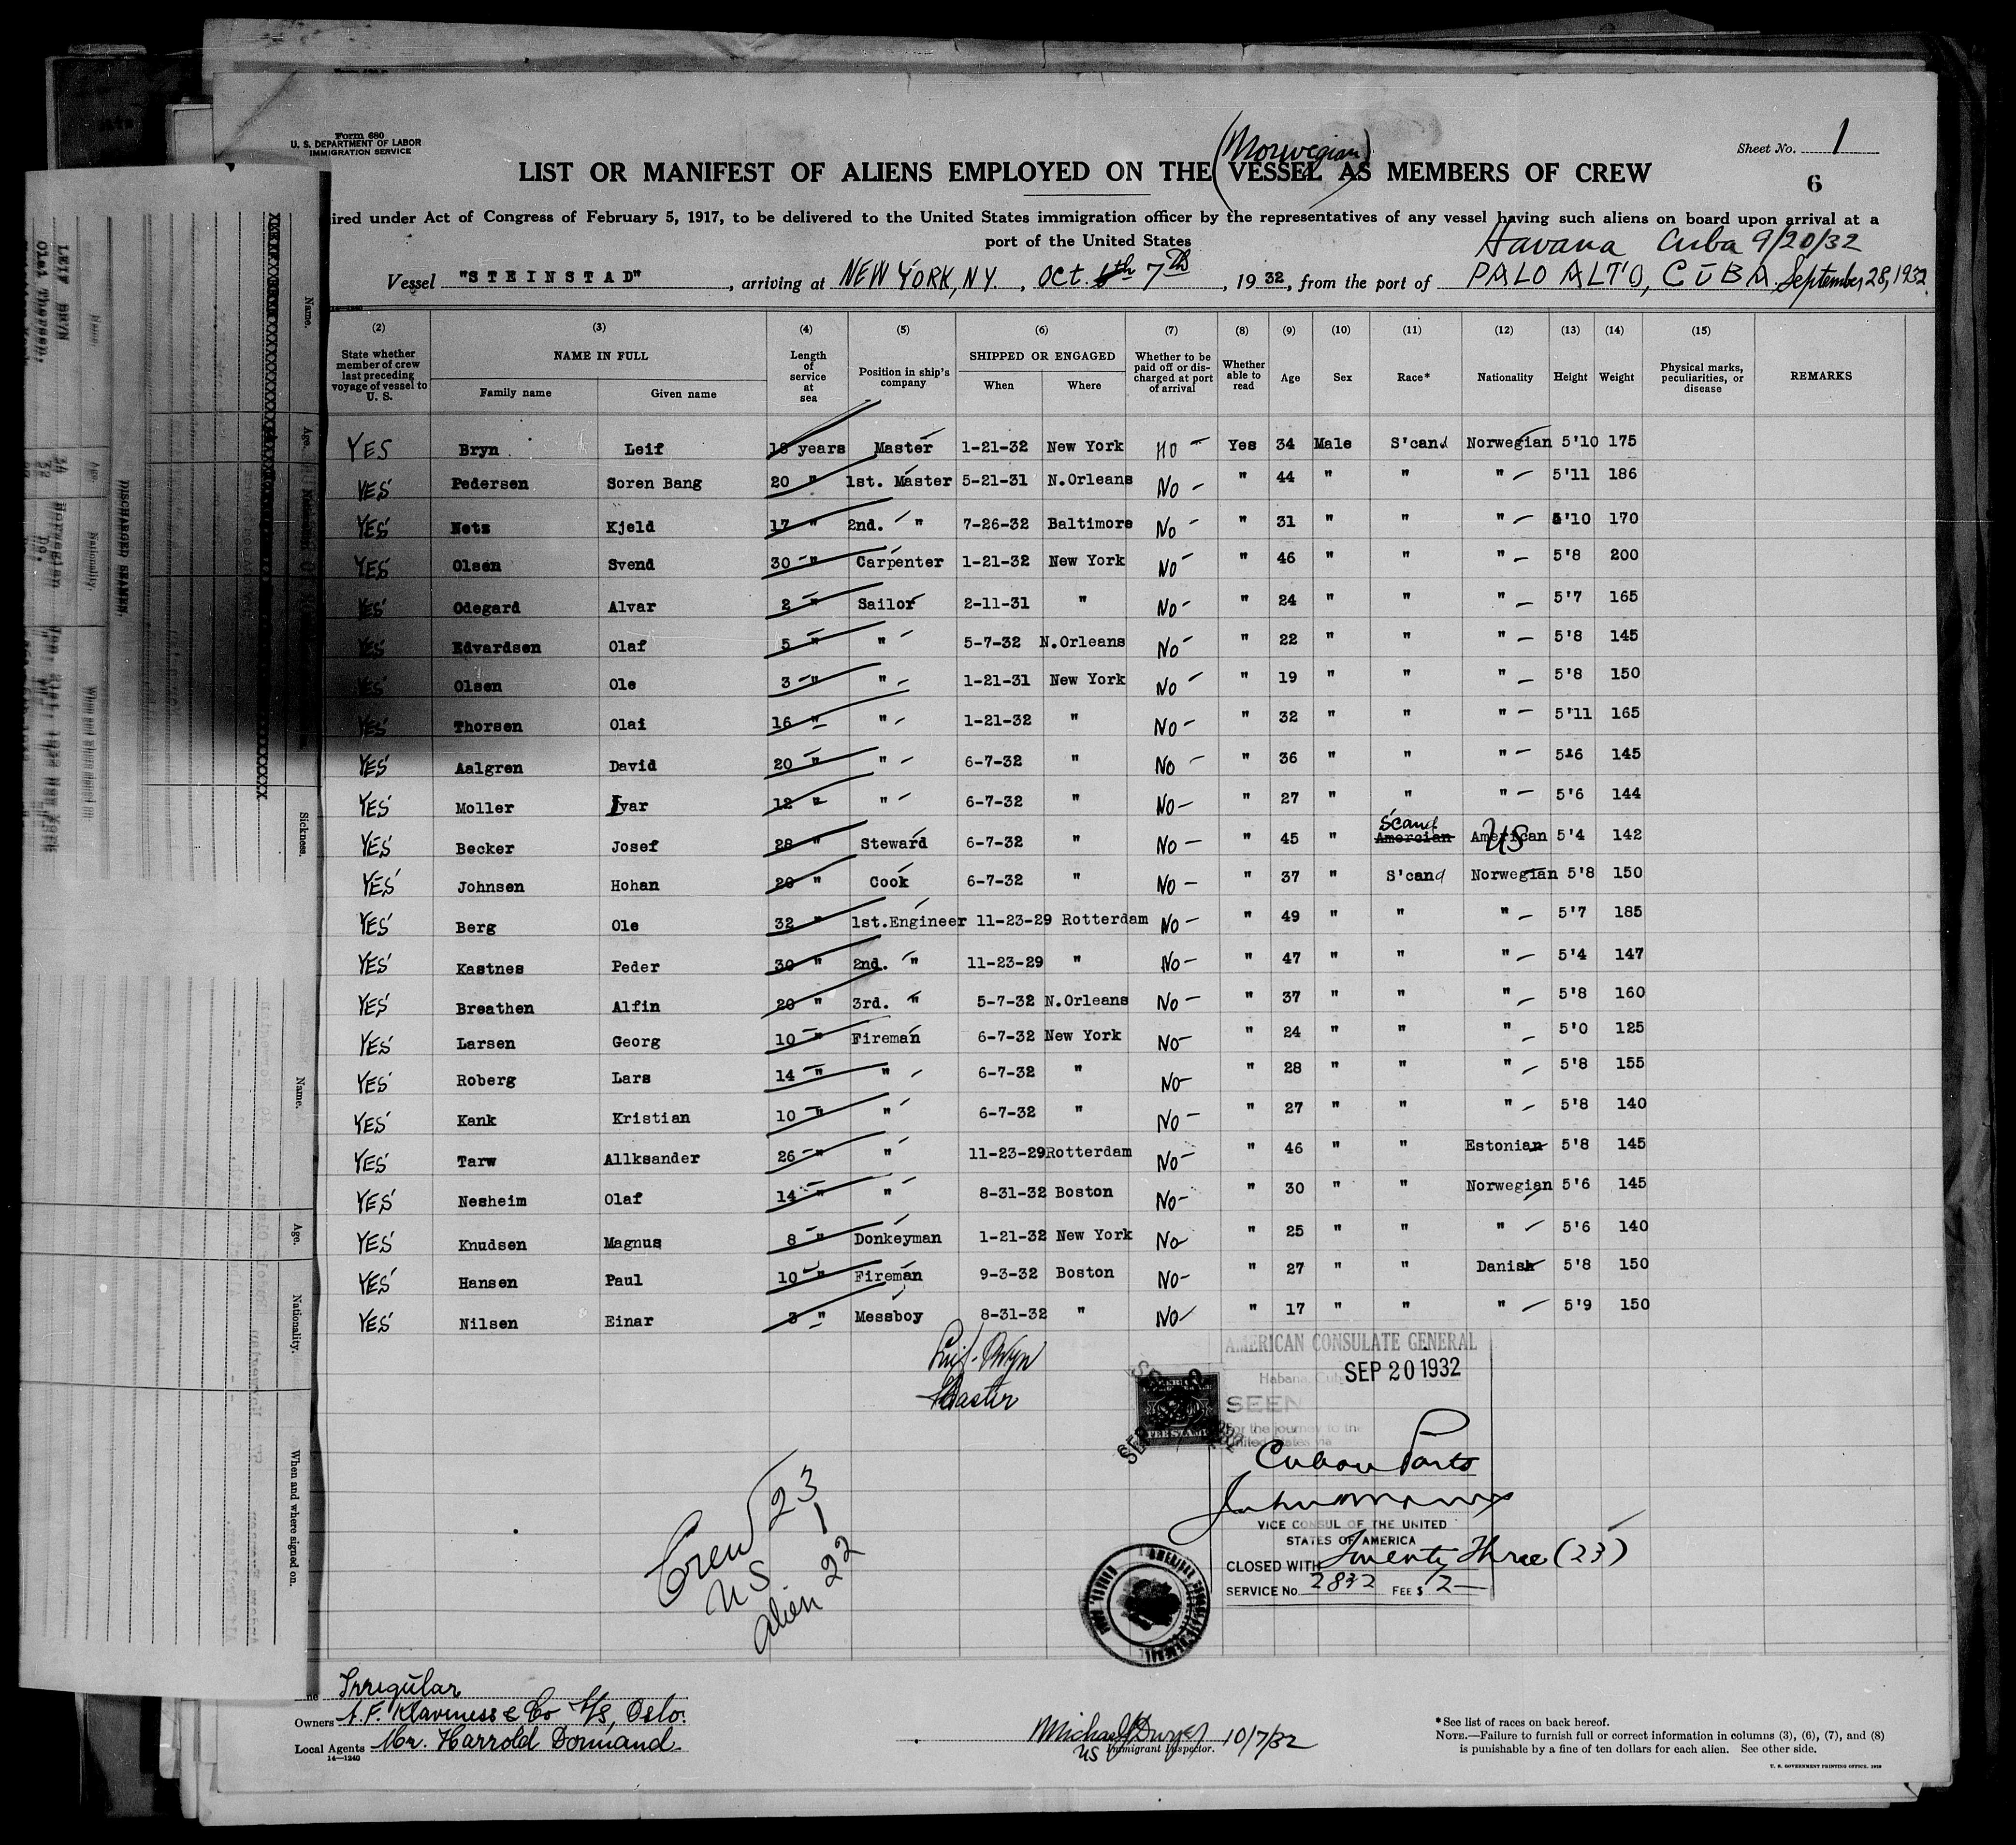 Form 680
U. S. DEPARTMENT OF LABOR
IMMIGRATION SERVICE
Sheet No. 1
6
(Norwegian)
LIST OR MANIFEST OF ALIENS EMPLOYED ON THE VESSEL AS MEMBERS OF CREW
ired under Act of Congress of February 5, 1917, to be delivered to the United States immigration officer by the representatives of any vessel having such aliens on board upon arrival at a
port of the United States
Havana Cuba 9/20/32
Vessel "STEINSTAD", arriving at NEW YORK, NY., OCT. 6th 7th, 1932, from the port of PALO ALTO, CUBA. September 28, 1932
(2) (3) (4) (5) (6) (7) (8) (9) (10) (11) (12) (13) (14) (15)
State whether member of crew last preceding voyage of vessel to U. S. | NAME IN FULL | Family name | Given name | Length of service at sea | Position in ship's company | SHIPPED OR ENGAGED | When | Where | Whether to be paid off or discharged at port of arrival | Whether able to read | Age | Sex | Race* | Nationality | Height | Weight | Physical marks, peculiarities, or disease | REMARKS
YES Bryn Leif 18 years Master 1-21-32 New York NO Yes 34 Male S'cand Norwegian 5'10 175
YES Pedersen Soren Bang 20 " 1st. Master 5-21-31 N.Orleans No " 44 " " " 5'11 186
YES Netz Kjeld 17 " 2nd. " 7-26-32 Baltimore No " 31 " " " 5'10 170
YES Olsen Svend 30 " Carpenter 1-21-32 New York No " 46 " " " 5'8 200
YES Odegard Alvar 2 " Sailor 2-11-31 " No " 24 " " " 5'7 165
YES Edvardsen Olaf 5 " " 5-7-32 N.Orleans No " 22 " " " 5'8 145
YES Olsen Ole 3 " " 1-21-31 New York No " 19 " " " 5'8 150
YES Thorsen Olai 16 " " 1-21-32 " No " 32 " " " 5'11 165
YES Aalgren David 20 " " 6-7-32 " No " 36 " " " 5-6 145
YES Moller Ivar 12 " " 6-7-32 " No " 27 " " " 5'6 144
YES Becker Josef 28 " Steward 6-7-32 " No " 45 " Amercian S'cand American US 5'4 142
YES Johnsen Hohan 20 " Cook 6-7-32 " No " 37 " S'cand Norwegian 5'8 150
YES Berg Ole 32 " 1st.Engineer 11-23-29 Rotterdam No " 49 " " " 5'7 185
YES Kastnes Peder 30 " 2nd. " 11-23-29 " No " 47 " " " 5'4 147
YES Breathen Alfin 20 " 3rd. " 5-7-32 N.Orleans No " 37 " " " 5'8 160
YES Larsen Georg 10 " Fireman 6-7-32 New York No " 24 " " " 5'0 125
YES Roberg Lars 14 " " 6-7-32 " No " 28 " " " 5'8 155
YES Kank Kristian 10 " " 6-7-32 " No " 27 " " " 5'8 140
YES Tarw Allksander 26 " " 11-23-29 Rotterdam No " 46 " " Estonian 5'8 145
YES Nesheim Olaf 14 " " 8-31-32 Boston No " 30 " " Norwegian 5'6 145
YES Knudsen Magnus 8 " Donkeyman 1-21-32 New York No " 25 " " " 5'6 140
YES Hansen Paul 10 " Fireman 9-3-32 Boston No " 27 " " Danish 5'8 150
YES Nilsen Einar 3 " Messboy 8-31-32 " No " 17 " " " 5'9 150
Leif Bryn
Master
AMERICAN CONSULATE GENERAL
Habana, Cuba SEP 20 1932
SEEN
For the journey to the
United States via
Cuban Ports
FEE STAMP
VICE CONSUL OF THE UNITED
STATES OF AMERICA
CLOSED WITH Twenty Three (23)
SERVICE No. 2832 FEE $ 2—
Crew 23
US 1
Alien 22
Irregular
Owners A. F. Klaveness & Co A/S, Oslo.
Local Agents Mr. Harrold Dormand
14—1240
Michael J Dwyer 10/7/32
US Immigrant Inspector.
*See list of races on back hereof.
NOTE.—Failure to furnish full or correct information in columns (3), (6), (7), and (8)
is punishable by a fine of ten dollars for each alien. See other side.
U. S. GOVERNMENT PRINTING OFFICE. 1929
DISCHARGED SEAMEN.
Name.
Age.
Nationality.
When and where signed on
LEIF BRYN
Name.
Age.
Sickness.
Name.
Age.
Nationality.
When and where signed on.